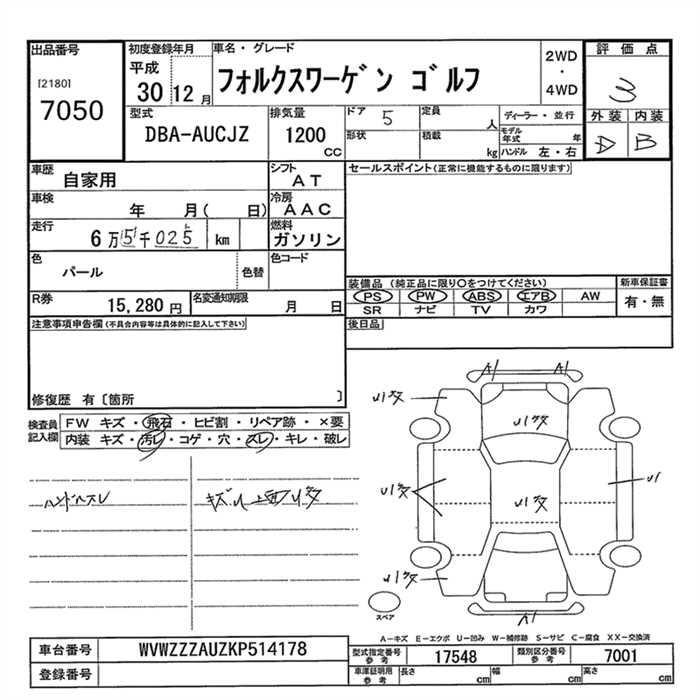 出品番号
[2180]
7050
初度登録年月
平成
30 12 月
車名・グレード
フォルクスワーゲン ゴルフ
2WD
・
4WD
評価点
3
外装 内装
D B
型式
DBA-AUCJZ
排気量
1200
CC
ドア 5
定員
人
形状
積載
kg
ディーラー・並行
モデル年式 年
ハンドル 左・右
車歴
自家用
シフト
AT
車検
年 月( 日)
冷房
AAC
走行
6万5千025 km
燃料
ガソリン
色
パール
色替
色コード
R券
15,280 円
名変通知期限
月 日
セールスポイント(正常に機能するものに限ります)
装備品 (純正品に限り○をつけてください)
PS PW ABS エアB AW
SR ナビ TV カワ
新車保証書
有・無
後日品
注意事項申告欄(不具合内容等は具体的に記入して下さい)
修復歴 有〔箇所 〕
検査員
記入欄
FW キズ・飛石・ヒビ割・リペア跡・×要
内装 キズ・汚レ・コゲ・穴・スレ・キレ・破レ
ハンドルスレ
A1 A1
U1
A1
スペア
A-キズ E-エクボ U-凹み W-補修跡 S-サビ C-腐食 XX-交換済
車台番号
WVWZZZAUZKP514178
登録番号
型式指定番号
参考
17548
類別区分番号
参考
7001
車庫証明用
参考
長さ cm
幅 cm
高さ cm